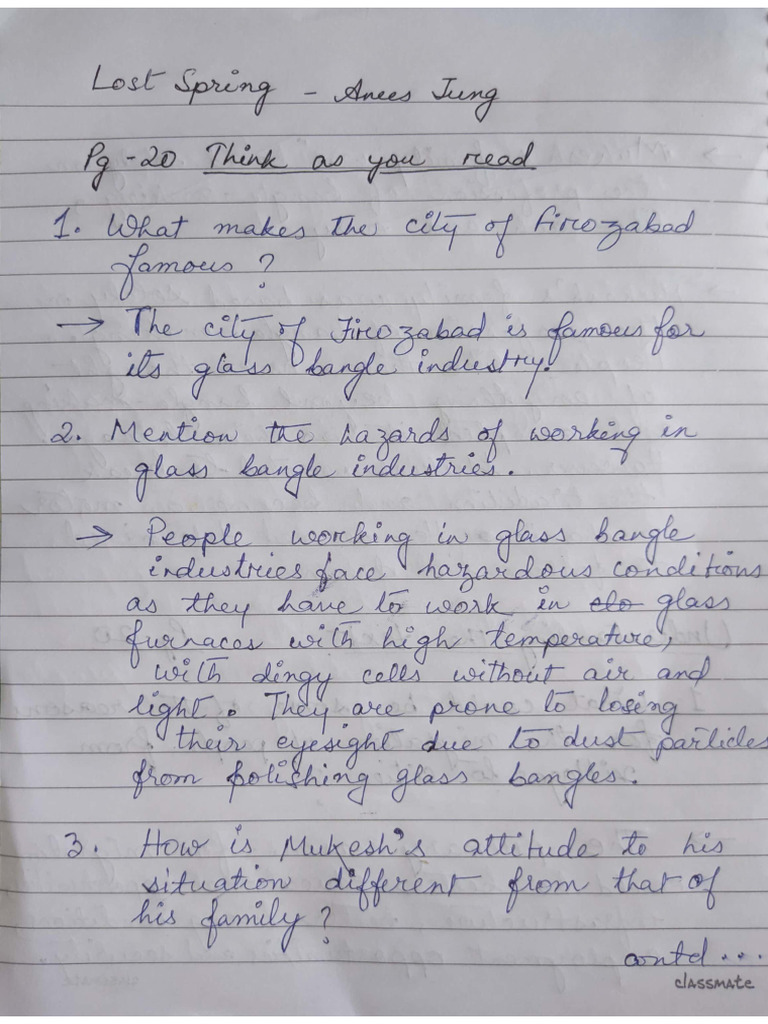 Lost Spring - Anees Jung
Pg - 20 Think as you read
1. What makes the city of Firozabad
famous?
→ The city of Firozabad is famous for
its glass bangle industry.
2. Mention the hazards of working in
glass bangle industries.
→ People working in glass bangle
industries face hazardous conditions
as they have to work in glass
furnaces with high temperature,
with dingy cells without air and
light. They are prone to losing
their eyesight due to dust particles
from polishing glass bangles.
3. How is Mukesh's attitude to his
situation different from that of
his family?
contd...
classmate